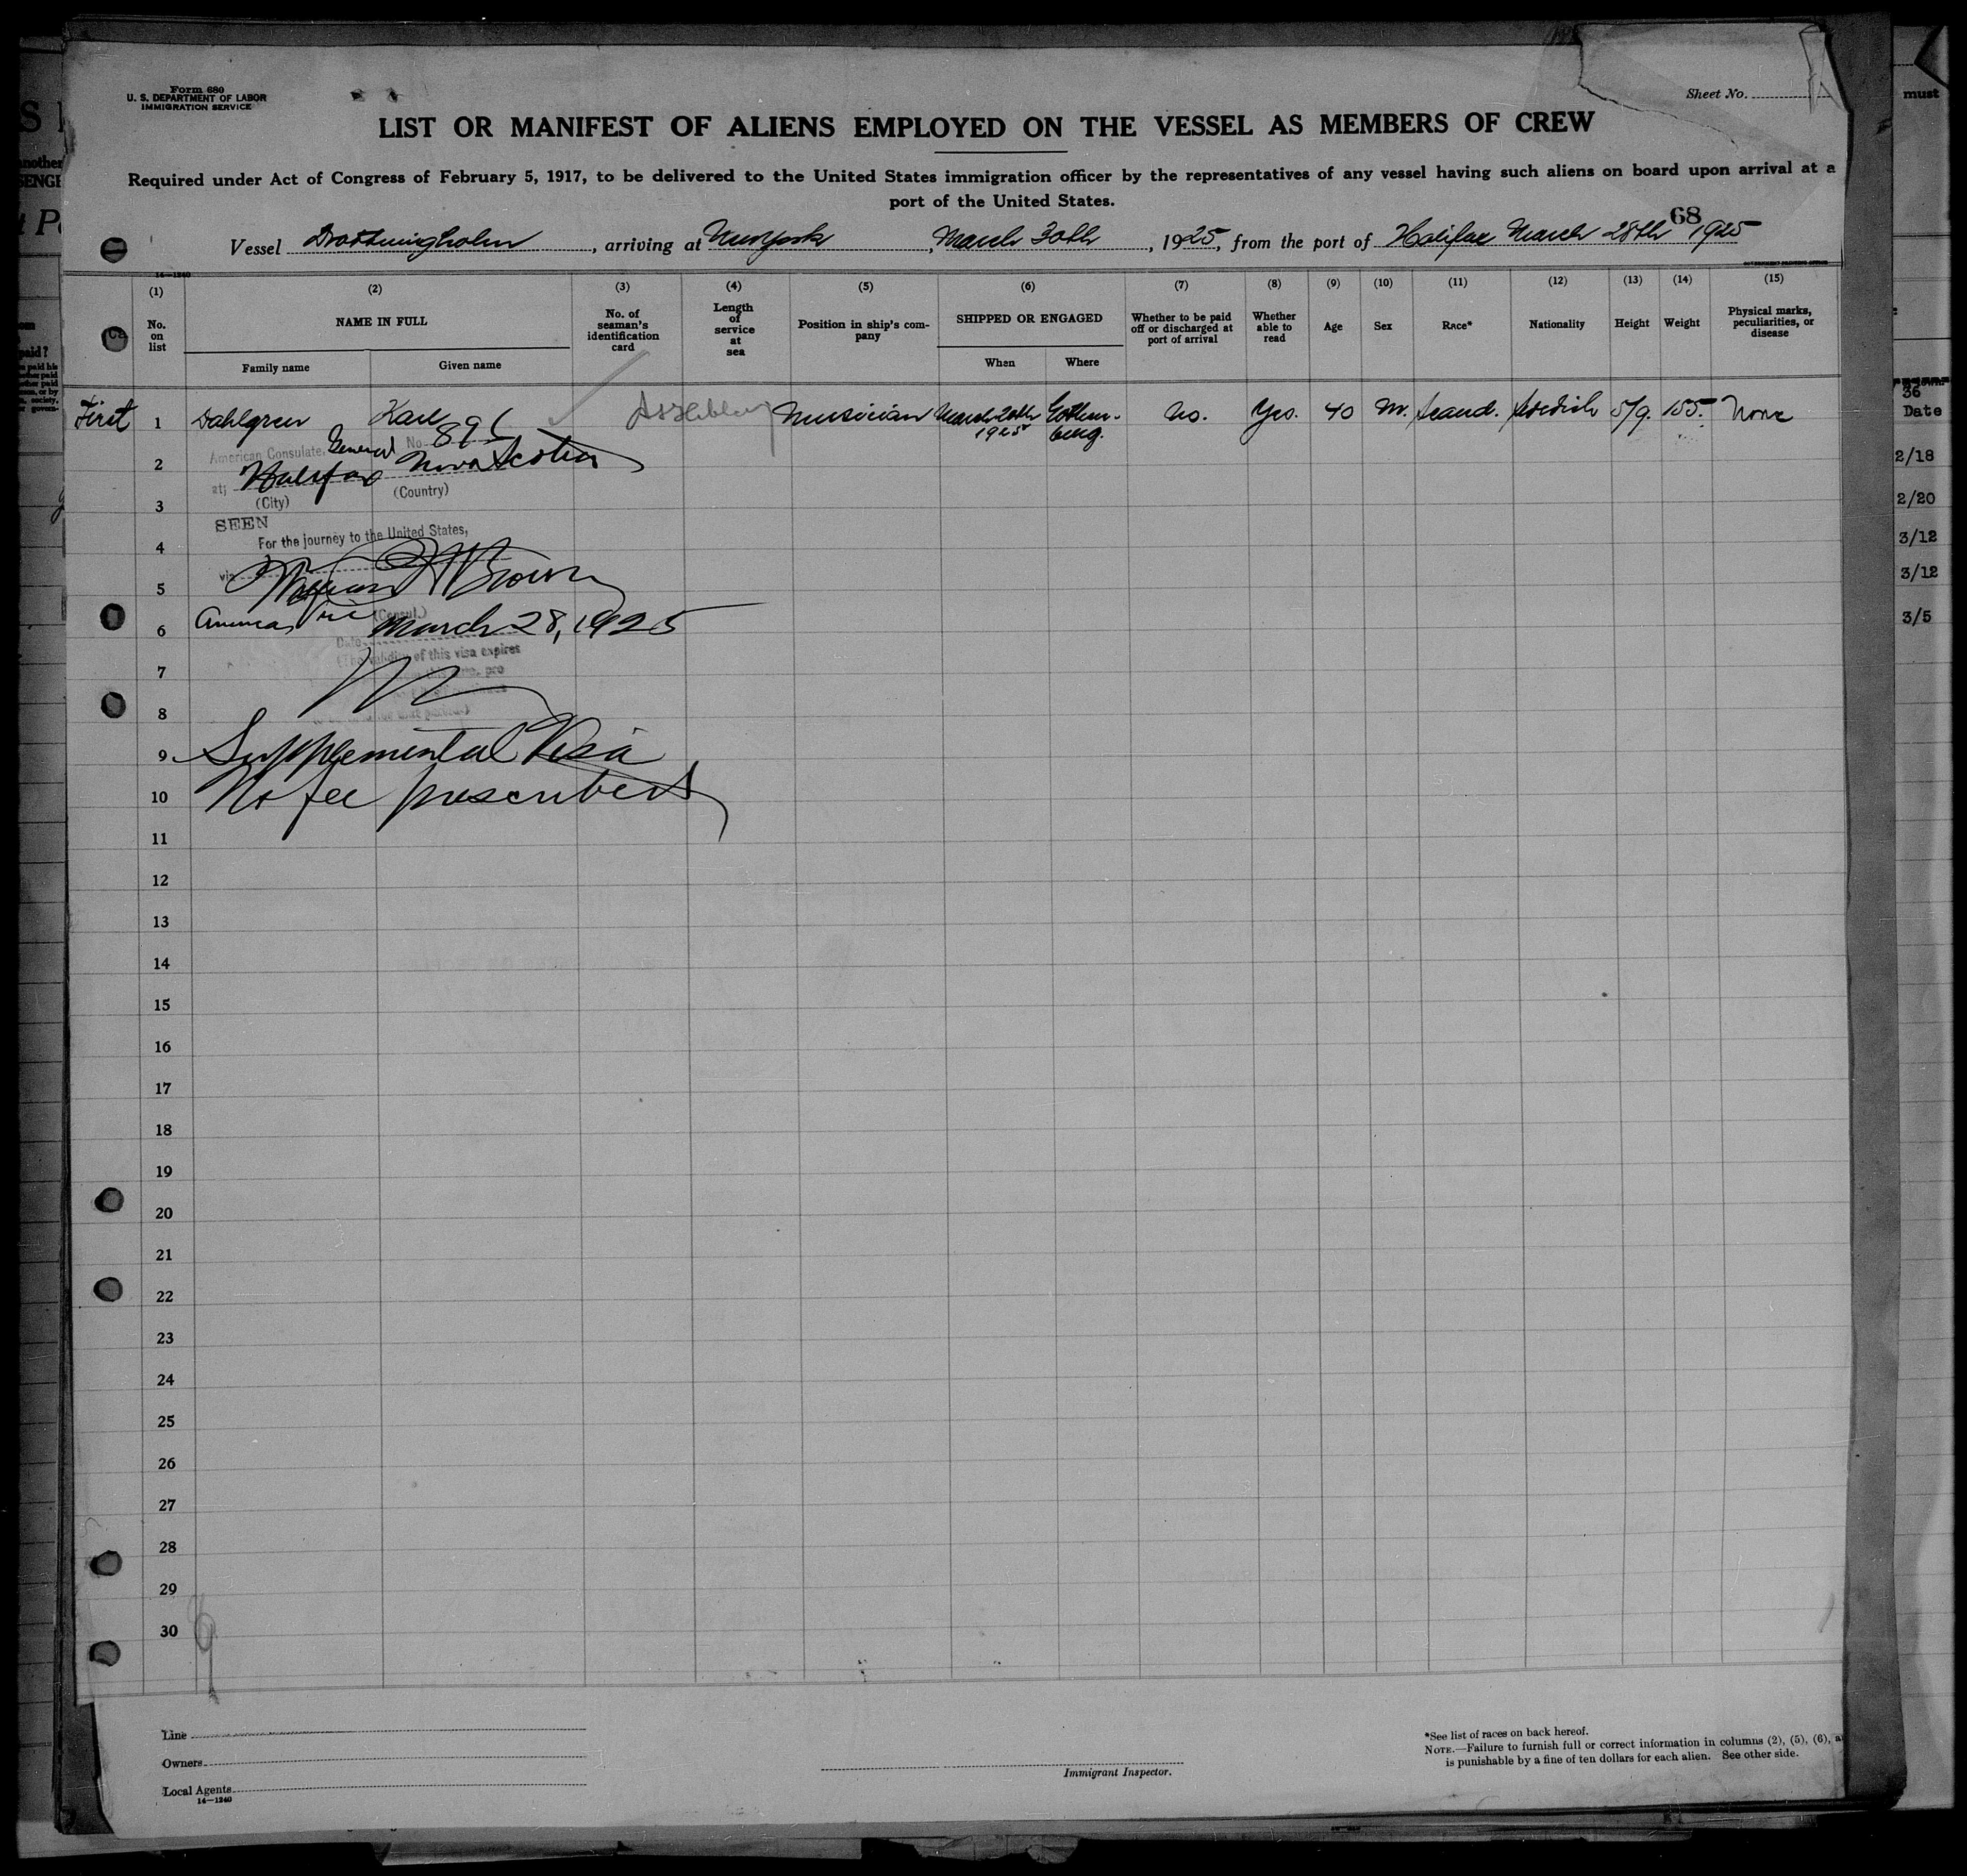 Form 680
U. S. DEPARTMENT OF LABOR
IMMIGRATION SERVICE
Sheet No.
LIST OR MANIFEST OF ALIENS EMPLOYED ON THE VESSEL AS MEMBERS OF CREW
Required under Act of Congress of February 5, 1917, to be delivered to the United States immigration officer by the representatives of any vessel having such aliens on board upon arrival at a
port of the United States.
68
Vessel Drottningholm, arriving at New York, March 30th, 1925, from the port of Halifax March 28th 1925
14—1240
(1) (2) (3) (4) (5) (6) (7) (8) (9) (10) (11) (12) (13) (14) (15)
No. on list
NAME IN FULL
Family name
Given name
No. of seaman's identification card
Length of service at sea
Position in ship's company
SHIPPED OR ENGAGED
When
Where
Whether to be paid off or discharged at port of arrival
Whether able to read
Age
Sex
Race*
Nationality
Height
Weight
Physical marks, peculiarities, or disease
First 1 Dahlgren Karl Musician March 20th 1925 Gothenburg. No. Yes. 40 M. Scand. Swedish 5/9. 155. None
American Consulate General No. 896
2
at Halifax Nova Scotia
(City) (Country)
3
SEEN
For the journey to the United States,
4
via
5
American Vice (Consul.)
6
Date March 28, 1925
(The validity of this visa expires
7
8
9 Supplemental Visa
10 No fee prescribed
11
12
13
14
15
16
17
18
19
20
21
22
23
24
25
26
27
28
29
30
Line
Owners
Local Agents
14—1240
Immigrant Inspector.
*See list of races on back hereof.
NOTE.—Failure to furnish full or correct information in columns (2), (5), (6),
is punishable by a fine of ten dollars for each alien. See other side.
must
36
Date
2/18
2/20
3/12
3/12
3/5